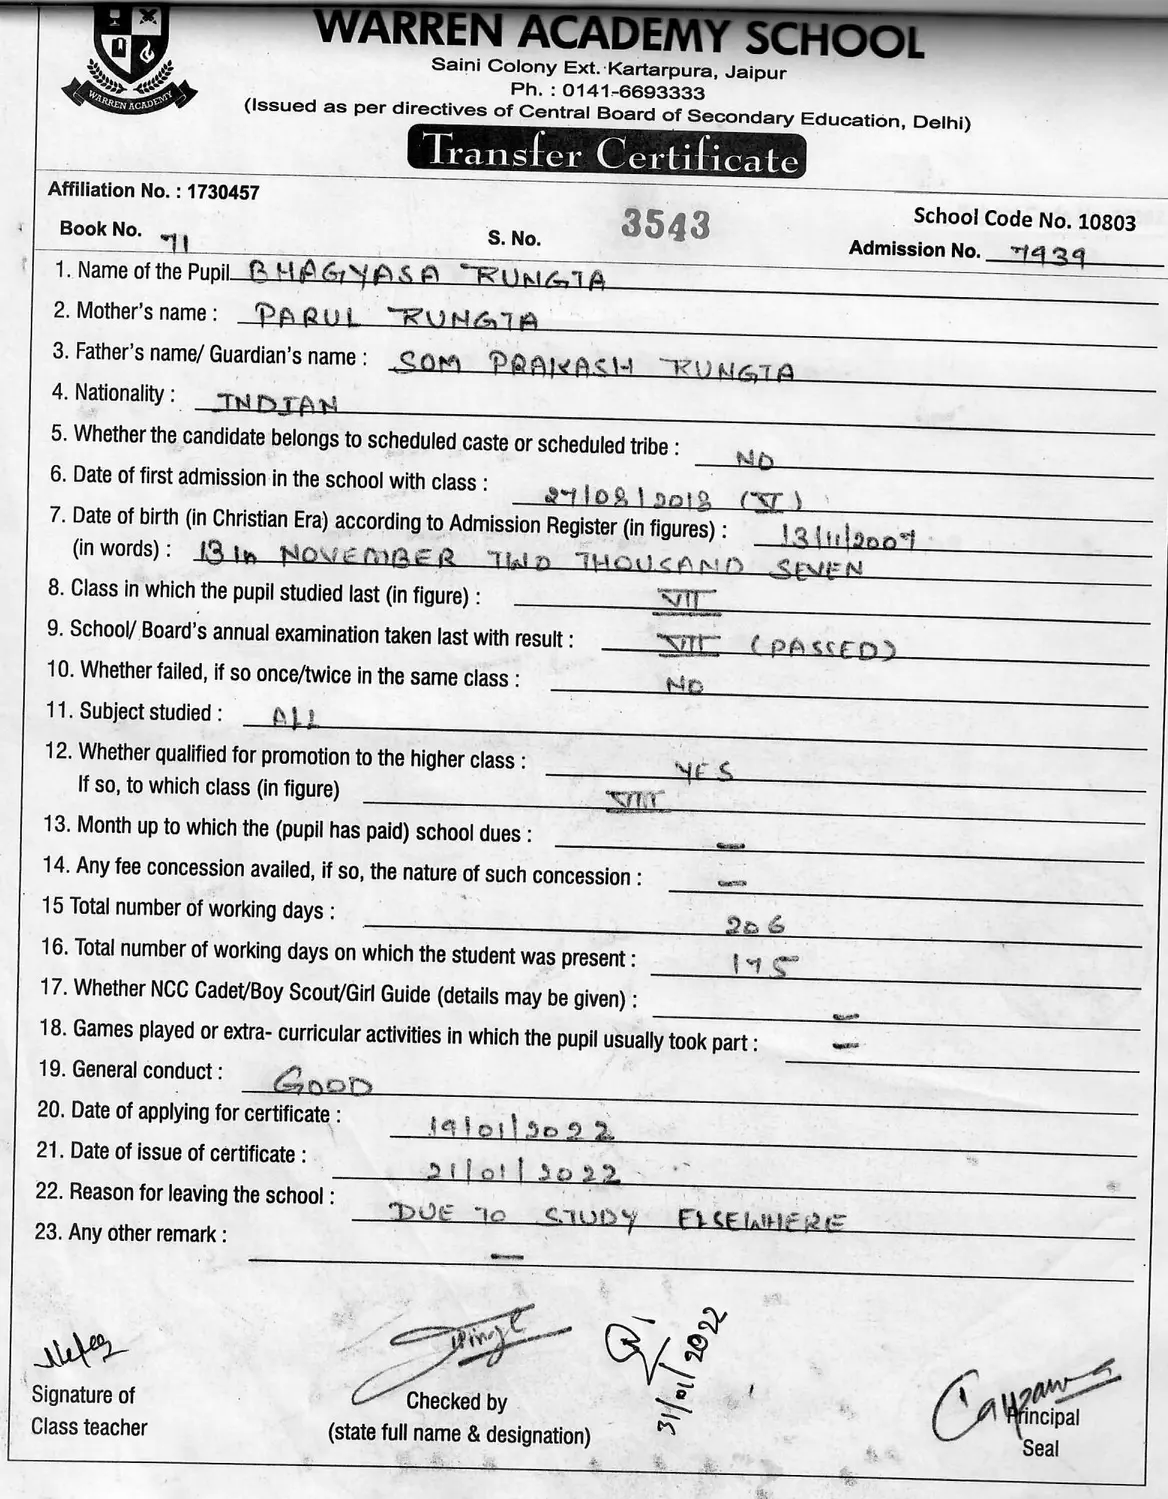 WARREN ACADEMY SCHOOL
WARREN ACADEMY
Saini Colony Ext. Kartarpura, Jaipur
Ph. : 0141-6693333
(Issued as per directives of Central Board of Secondary Education, Delhi)
Transfer Certificate
Affiliation No. : 1730457
School Code No. 10803
Book No. 71 S. No. 3543 Admission No. 7939
1. Name of the Pupil BHAGYASA RUNGTA
2. Mother's name : PARUL RUNGTA
3. Father's name/ Guardian's name : SOM PRAKASH RUNGTA
4. Nationality : INDIAN
5. Whether the candidate belongs to scheduled caste or scheduled tribe : NO
6. Date of first admission in the school with class : 27/08/2018 (V)
7. Date of birth (in Christian Era) according to Admission Register (in figures) : 13/11/2007
(in words) : 13th NOVEMBER TWO THOUSAND SEVEN
8. Class in which the pupil studied last (in figure) : VII
9. School/ Board's annual examination taken last with result : VII (PASSED)
10. Whether failed, if so once/twice in the same class : NO
11. Subject studied : ALL
12. Whether qualified for promotion to the higher class : YES
If so, to which class (in figure) VIII
13. Month up to which the (pupil has paid) school dues : —
14. Any fee concession availed, if so, the nature of such concession : —
15 Total number of working days : 206
16. Total number of working days on which the student was present : 175
17. Whether NCC Cadet/Boy Scout/Girl Guide (details may be given) : —
18. Games played or extra- curricular activities in which the pupil usually took part : —
19. General conduct : GOOD
20. Date of applying for certificate : 19/01/2022
21. Date of issue of certificate : 21/01/2022
22. Reason for leaving the school : DUE TO STUDY ELSEWHERE
23. Any other remark : —
31/01/2022
Signature of
Class teacher
Checked by
(state full name & designation)
Principal
Seal